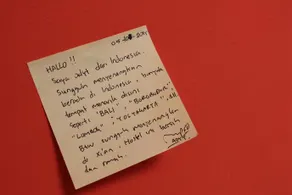 HALLO !!
Saya dari Indonesia.
Sungguh menyenangkan
berada di Indonesia, banyak
tempat menarik disini
seperti "BALI", "BOROBUDUR",
"LOMBOK", "YOGYAKARTA", dll
sungguh menyenangkan
di Xian. Hotel ini bersih
dan ramah.